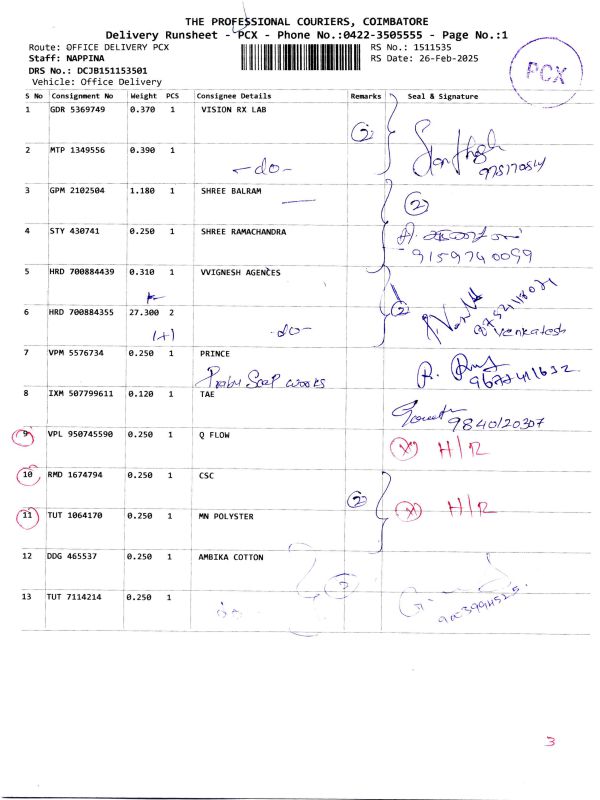 THE PROFESSIONAL COURIERS, COIMBATORE
Delivery Runsheet - PCX - Phone No.:0422-3505555 - Page No.:1
Route: OFFICE DELIVERY PCX RS No.: 1511535
Staff: NAPPINA RS Date: 26-Feb-2025
DRS No.: DCJB151153501
Vehicle: Office Delivery
PCX
S No Consignment No Weight PCS Consignee Details Remarks Seal & Signature
1 GDR 5369749 0.370 1 VISION RX LAB
2
2 MTP 1349556 0.390 1
-do-
3 GPM 2102504 1.180 1 SHREE BALRAM
2
4 STY 430741 0.250 1 SHREE RAMACHANDRA
9159740099
5 HRD 700884439 0.310 1 VVIGNESH AGENCES
2
6 HRD 700884355 27.300 2
(1+1) -do- Venkatesh
7 VPM 5576734 0.250 1 PRINCE
Prabu Soap works
8 IXM 507799611 0.120 1 TAE
9840120307
9 VPL 950745590 0.250 1 Q FLOW
H/R
10 RMD 1674794 0.250 1 CSC
2
11 TUT 1064170 0.250 1 MN POLYSTER
H/R
12 DDG 465537 0.250 1 AMBIKA COTTON
13 TUT 7114214 0.250 1
3